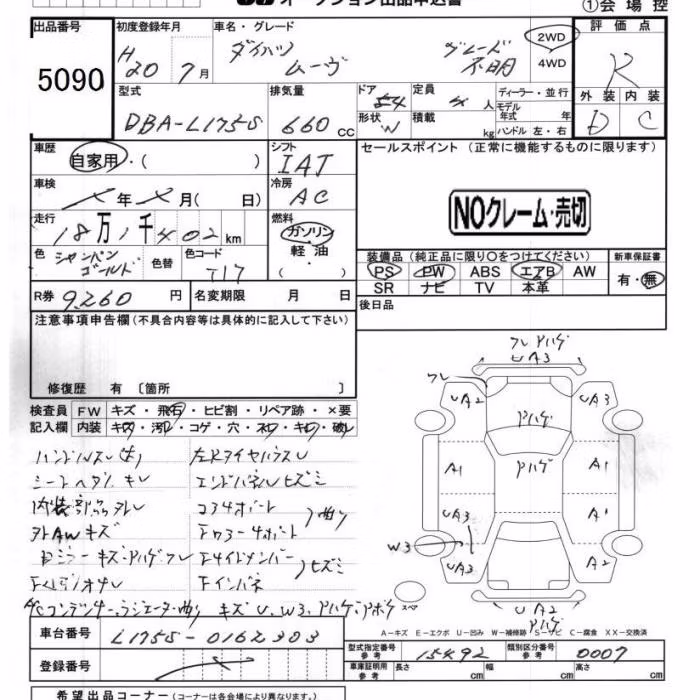 ①会 場 控
出品番号
5090
初度登録年月
H20 7月
車名・グレード
ダイハツ ムーヴ
グレード不明
2WD
4WD
評 価 点
R
外 装 内 装
D C
型式
DBA-L175S
排気量
660 cc
ドア
54
定員
4 人
形状
W
積載
kg
ディーラー・並 行
モデル年式 年
ハンドル 左・右
車歴
自家用・( )
シフト
IAT
車検
年 月( 日)
冷房
AC
走行
18万1千402km
燃料
ガソリン
軽 油
( )
色
シャンパンゴールド
色替
色コード
T17
R券 9,260 円
名変期限 月 日
セールスポイント (正常に機能するものに限ります)
NOクレーム・売切
装備品(純正品に限り〇をつけてください)
PS PW ABS エアB AW
SR ナビ TV 本革
新車保証書
有・無
後日品
注意事項申告欄(不具合内容等は具体的に記入して下さい)
修復歴 有 〔箇所 〕
検査員 FW キズ・飛石・ヒビ割・リペア跡・×要
記入欄 内装 キズ・汚レ・コゲ・穴・スレ・キレ・破レ
ハンドルスレ(大) 左Rタイヤハウスリ
シートヘタリ キレ エンドパネルヒズミ
コアサポート
AWキズ
Rミラーキズ・Pハゲ・ワレ
Fインパネ
ヒズミ
キズ U、W3、Pハゲ・
ワレ Pハゲ
UA3
ワレ
UA2
UA3
Pハゲ
A1
Pハゲ
A1
UA3
A1
W3
UA3
A2
UA2
Pハゲ
スペア
A－キズ E－エクボ U－凹み W－補修跡 S－サビ C－腐食 XX－交換済
車台番号 L175S-0162303
登録番号
型式指定番号 参考 15492
類別区分番号 参考 0007
車庫証明用 参考 長さ cm 幅 cm 高さ cm
希望出品コーナー(コーナーは各会場により異なります。)